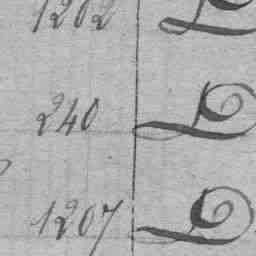 1202 L
240 L
1207 L